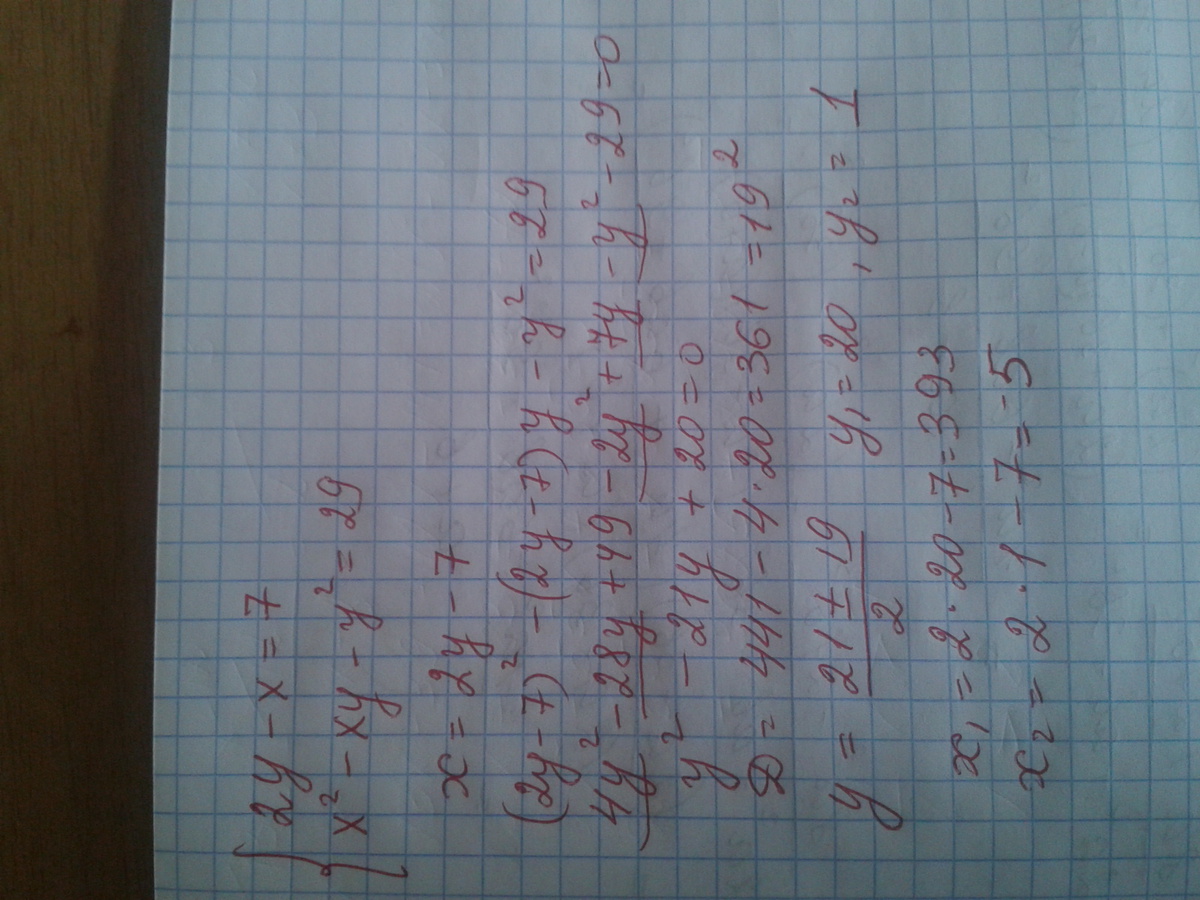 2y - x = 7
x² - xy - y² = 29
x = 2y - 7
(2y - 7)² - (2y - 7)y - y² = 29
4y² - 28y + 49 - 2y² + 7y - y² - 29 = 0
y² - 21y + 20 = 0
D = 441 - 4·20 = 361 = 19²
y = (21 ± 19)/2 y₁ = 20, y₂ = 1
x₁ = 2·20 - 7 = 393
x₂ = 2·1 - 7 = -5